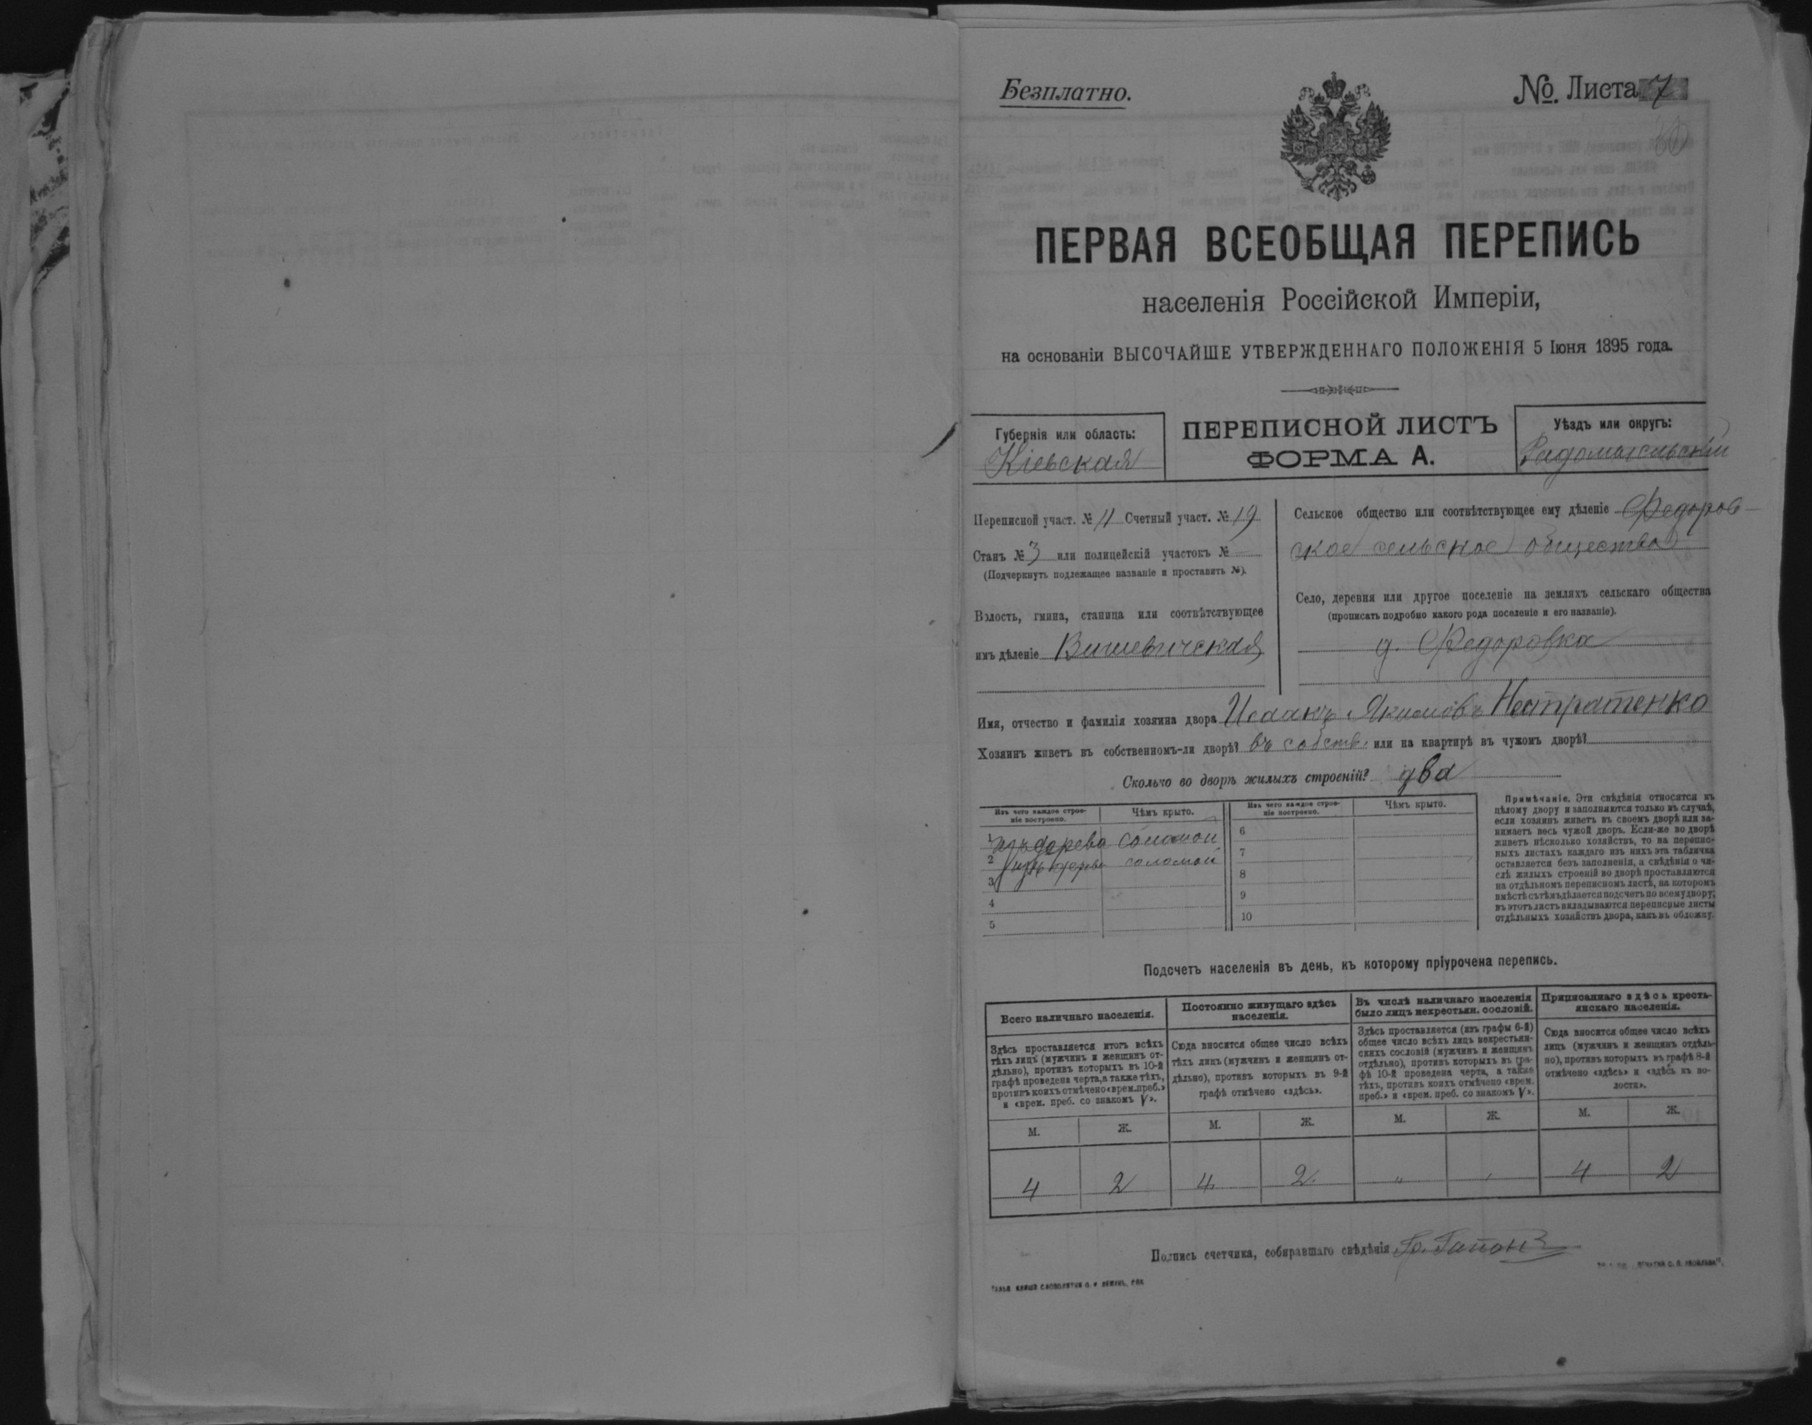 Безплатно.
№ Листа 7
ПЕРВАЯ ВСЕОБЩАЯ ПЕРЕПИСЬ
населенія Россійской Имперіи,
на основаніи ВЫСОЧАЙШЕ УТВЕРЖДЕННАГО ПОЛОЖЕНІЯ 5 Іюня 1895 года.
Губернія или область:
Кіевская
ПЕРЕПИСНОЙ ЛИСТЪ
ФОРМА А.
Уѣздъ или округъ:
Радомысльскій
Переписной участ. № 11 Счетный участ. № 19
Станъ № 3 или полицейскій участокъ №
(Подчеркнуть подлежащее названіе и проставить №).
Волость, гмина, станица или соотвѣтствующее
имъ дѣленіе Вишевичская
Сельское общество или соотвѣтствующее ему дѣленіе Федоров-
ское сельское общество
Село, деревня или другое поселеніе на земляхъ сельскаго общества
(прописать подробно какого рода поселеніе и его названіе).
д. Федоровка
Имя, отчество и фамилія хозяина двора Исаакъ Якимовъ Нестратенко
Хозяинъ живетъ въ собственномъ-ли дворѣ? въ собств. или на квартирѣ въ чужомъ дворѣ?
Сколько во дворѣ жилыхъ строеній? два
Изъ чего каждое строе-
ніе построено.
Чѣмъ крыто.
Изъ чего каждое строе-
ніе построено.
Чѣмъ крыто.
1 изъ дерева соломой
2 изъ дерева соломой
3
4
5
6
7
8
9
10
Примѣчаніе. Эти свѣдѣнія относятся къ
цѣлому двору и заполняются только въ случаѣ,
если хозяинъ живетъ въ своемъ дворѣ или за-
нимаетъ весь чужой дворъ. Если-же во дворѣ
живетъ нѣсколько хозяйствъ, то на перепис-
ныхъ листахъ каждаго изъ нихъ эта табличка
оставляется безъ заполненія, а свѣдѣнія о чи-
слѣ жилыхъ строеній во дворѣ проставляются
на отдѣльномъ переписномъ листѣ, на которомъ
вмѣстѣ съ тѣмъ дѣлается подсчетъ по всему двору;
въ этотъ листъ вкладываются переписные листы
отдѣльныхъ хозяйствъ двора, какъ въ обложку.
Подсчетъ населенія въ день, къ которому пріурочена перепись.
Всего наличнаго населенія.
Постоянно живущаго здѣсь
населенія.
Въ числѣ наличнаго населенія
было лицъ некрестьян. сословій.
Приписаннаго здѣсь кресть-
янскаго населенія.
Здѣсь проставляется итогъ всѣхъ
тѣхъ лицъ (мужчинъ и женщинъ от-
дѣльно), противъ которыхъ въ 10-й
графѣ проведена черта, а также тѣхъ,
противъ коихъ отмѣчено «врем. преб.»
и «врем. преб. со знакомъ V».
Сюда вносится общее число всѣхъ
тѣхъ лицъ (мужчинъ и женщинъ от-
дѣльно), противъ которыхъ въ 9-й
графѣ отмѣчено «здѣсь».
Здѣсь проставляется (изъ графы 6-й)
общее число всѣхъ лицъ некрестьян-
скихъ сословій (мужчинъ и женщинъ
отдѣльно), противъ которыхъ въ гра-
фѣ 10-й проведена черта, а также
тѣхъ, противъ коихъ отмѣчено «врем.
преб.» и «врем. преб. со знакомъ V».
Сюда вносится общее число всѣхъ
лицъ (мужчинъ и женщинъ отдѣль-
но), противъ которыхъ въ графѣ 8-й
отмѣчено «здѣсь» и «здѣсь въ во-
лости».
М. Ж. М. Ж. М. Ж. М. Ж.
4 2 4 2 " " 4 2
Подпись счетчика, собиравшаго свѣдѣнія Гапон